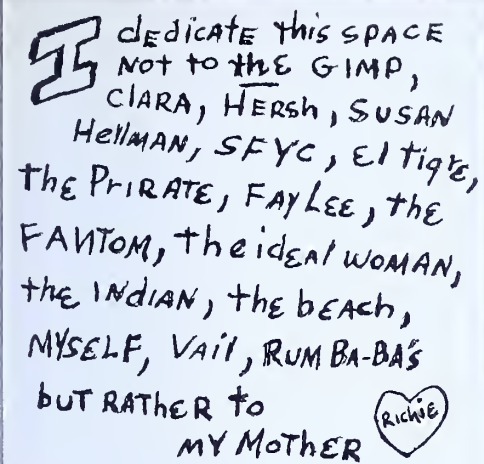 I dEdicAtE this SPACE
NOT to thE GIMP,
ClARA, HERSh, SUSAN
HellMAN, SFYC, El tigrE,
thE PrIRATE, FAY LEE, thE
FANTOM, the idEAl WOMAN,
thE INdIAN, thE bEACh,
MYSELF, VAil, RUM BA-BA's
bUT RAThER to
MY MOThER
RichiE